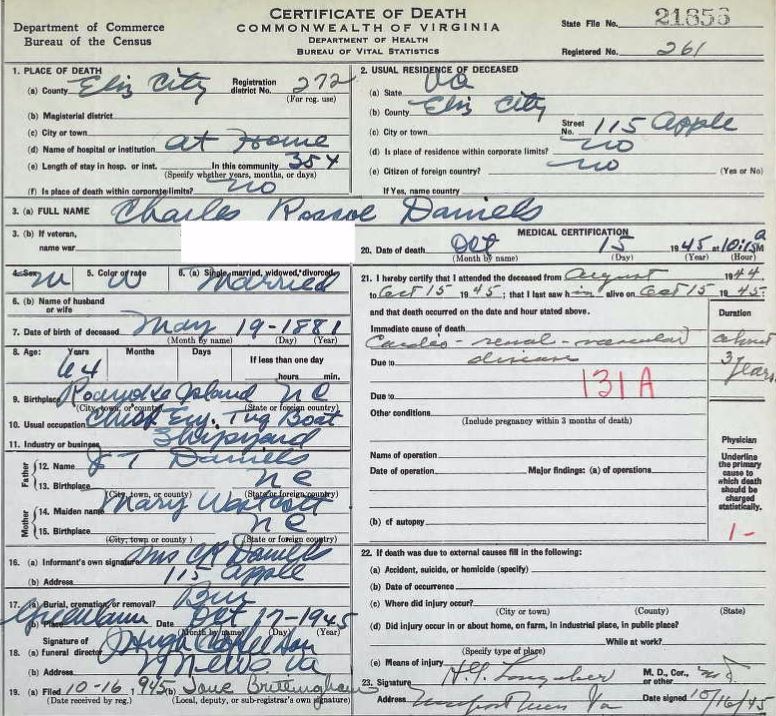 CERTIFICATE OF DEATH
COMMONWEALTH OF VIRGINIA
DEPARTMENT OF HEALTH
BUREAU OF VITAL STATISTICS
Department of Commerce
Bureau of the Census
State File No. 21853
Registered No. 261
1. PLACE OF DEATH
(a) County Eliz City Registration district No. 272
(For reg. use)
(b) Magisterial district
(c) City or town
(d) Name of hospital or institution at Home
(e) Length of stay in hosp. or inst. In this community 35 y
(Specify whether years, months, or days)
(f) Is place of death within corporate limits? no
2. USUAL RESIDENCE OF DECEASED
(a) State Va
(b) County Eliz City
(c) City or town Street No. 115 Apple
(d) Is place of residence within corporate limits? no
(e) Citizen of foreign country? no (Yes or No)
If Yes, name country
3. (a) FULL NAME Charles Roscoe Daniels
3. (b) If veteran,
name war
4. Sex M 5. Color or race W 6. (a) Single, married, widowed, divorced Married
6. (b) Name of husband
or wife
7. Date of birth of deceased May 19-1881
(Month by name) (Day) (Year)
8. Age: Years Months Days If less than one day
64 hours min.
9. Birthplace Roanoke Island N C
(City, town, or county) (State or foreign country)
10. Usual occupation Chief Eng. Tug Boat
11. Industry or business Shipyard
Father
12. Name J T Daniels
13. Birthplace N C
(City, town, or county) (State or foreign country)
Mother
14. Maiden name Mary Westcott
15. Birthplace N C
(City, town, or county) (State or foreign country)
16. (a) Informant's own signature Mrs C R Daniels
(b) Address 115 Apple
17. (a) Burial, cremation, or removal? Bur
(b) Place Greenlawn Date Oct 17-1945
(Month by name) (Day) (Year)
18. Signature of
(a) funeral director Hugh
(b) Address N News Va
19. (a) Filed 10-16 1945 (b) Jane Brittingham
(Date received by reg.) (Local, deputy, or sub-registrar's own signature)
MEDICAL CERTIFICATION
20. Date of death Oct 15 1945 at 10:15 a M
(Month by name) (Day) (Year) (Hour)
21. I hereby certify that I attended the deceased from August 1944
to Oct 15 1945; that I last saw him alive on Oct 15 1945
and that death occurred on the date and hour stated above.
Duration
Immediate cause of death
Cardio-renal-vascular about
Due to disease 3 years
131A
Due to
Other conditions
(Include pregnancy within 3 months of death)
Name of operation
Date of operation Major findings: (a) of operations
(b) of autopsy
Physician
Underline
the primary
cause to
which death
should be
charged
statistically.
1-
22. If death was due to external causes fill in the following:
(a) Accident, suicide, or homicide (specify)
(b) Date of occurrence
(c) Where did injury occur?
(City or town) (County) (State)
(d) Did injury occur in or about home, on farm, in industrial place, in public place?
While at work?
(Specify type of place)
(e) Means of injury
23. Signature M. D., Cor., or other M D
Address Newport News Va Date signed 10/16/45